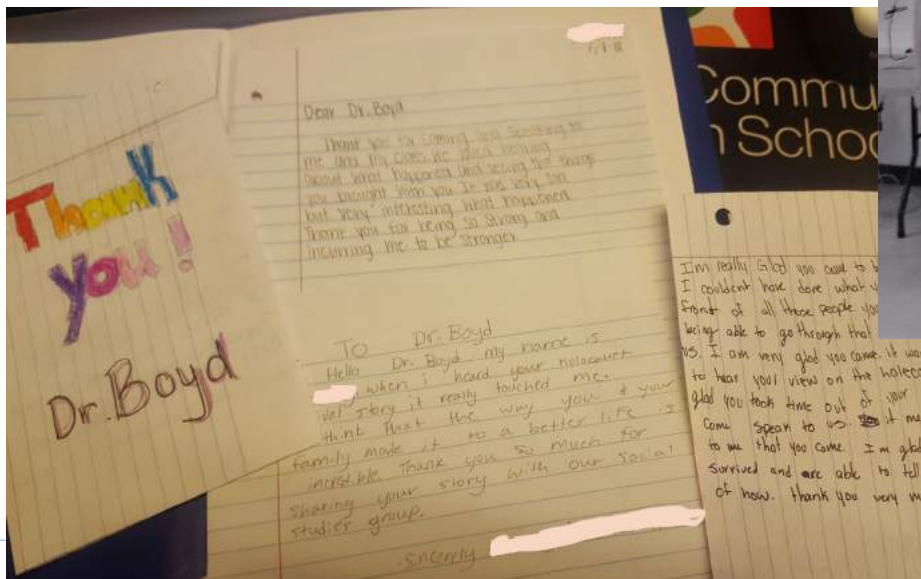 Thank
you!
Dr. Boyd
Dear Dr. Boyd
Thank you for coming and speaking to
me and my class. We liked hearing
about what happened and seeing the things
you brought with you It was very sad
but very interesting what happened
Thank you for being so strong and
incurring me to be stronger
To Dr. Boyd
Hello Dr. Boyd my name is
when i heard your holocaust
ival story it really touched me.
think that the way you & your
family made it to a better life is
incredible. Thank you so much for
sharing your story with our social
studies group.
sincerely
Commu
n Schoo
Im really Glad you came to
I couldent have done what
front of all those people you
being able to go through that
us. I am very glad you came. it was
to hear your view on the holoco
glad you took time out of your
come speak to us. it me
to me that you came. I'm glad
survived and are able to tell
of how. thank you very m